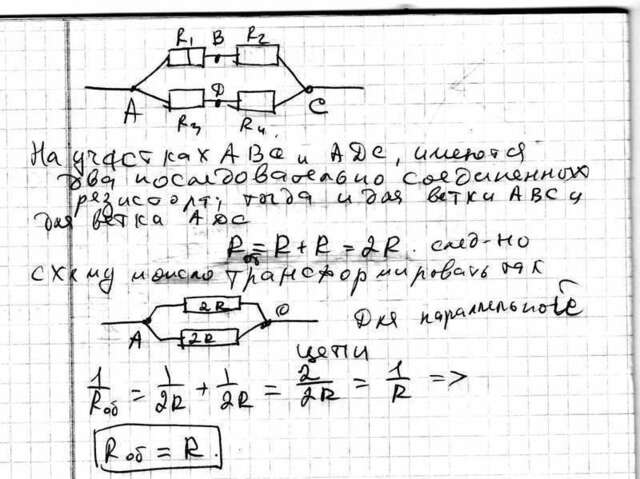 R1 B R2
A D C
R3 R4
На участках ABC и ADC, имеются
два последовательно соединенных
резистора; тогда и для ветки ABC и
для ветки ADC
Rоб = R + R = 2R. след-но
схему можно трансформировать так
2R
A 2R C
Для параллельной
цепи
1/Rоб = 1/2R + 1/2R = 2/2R = 1/R =>
Rоб = R.